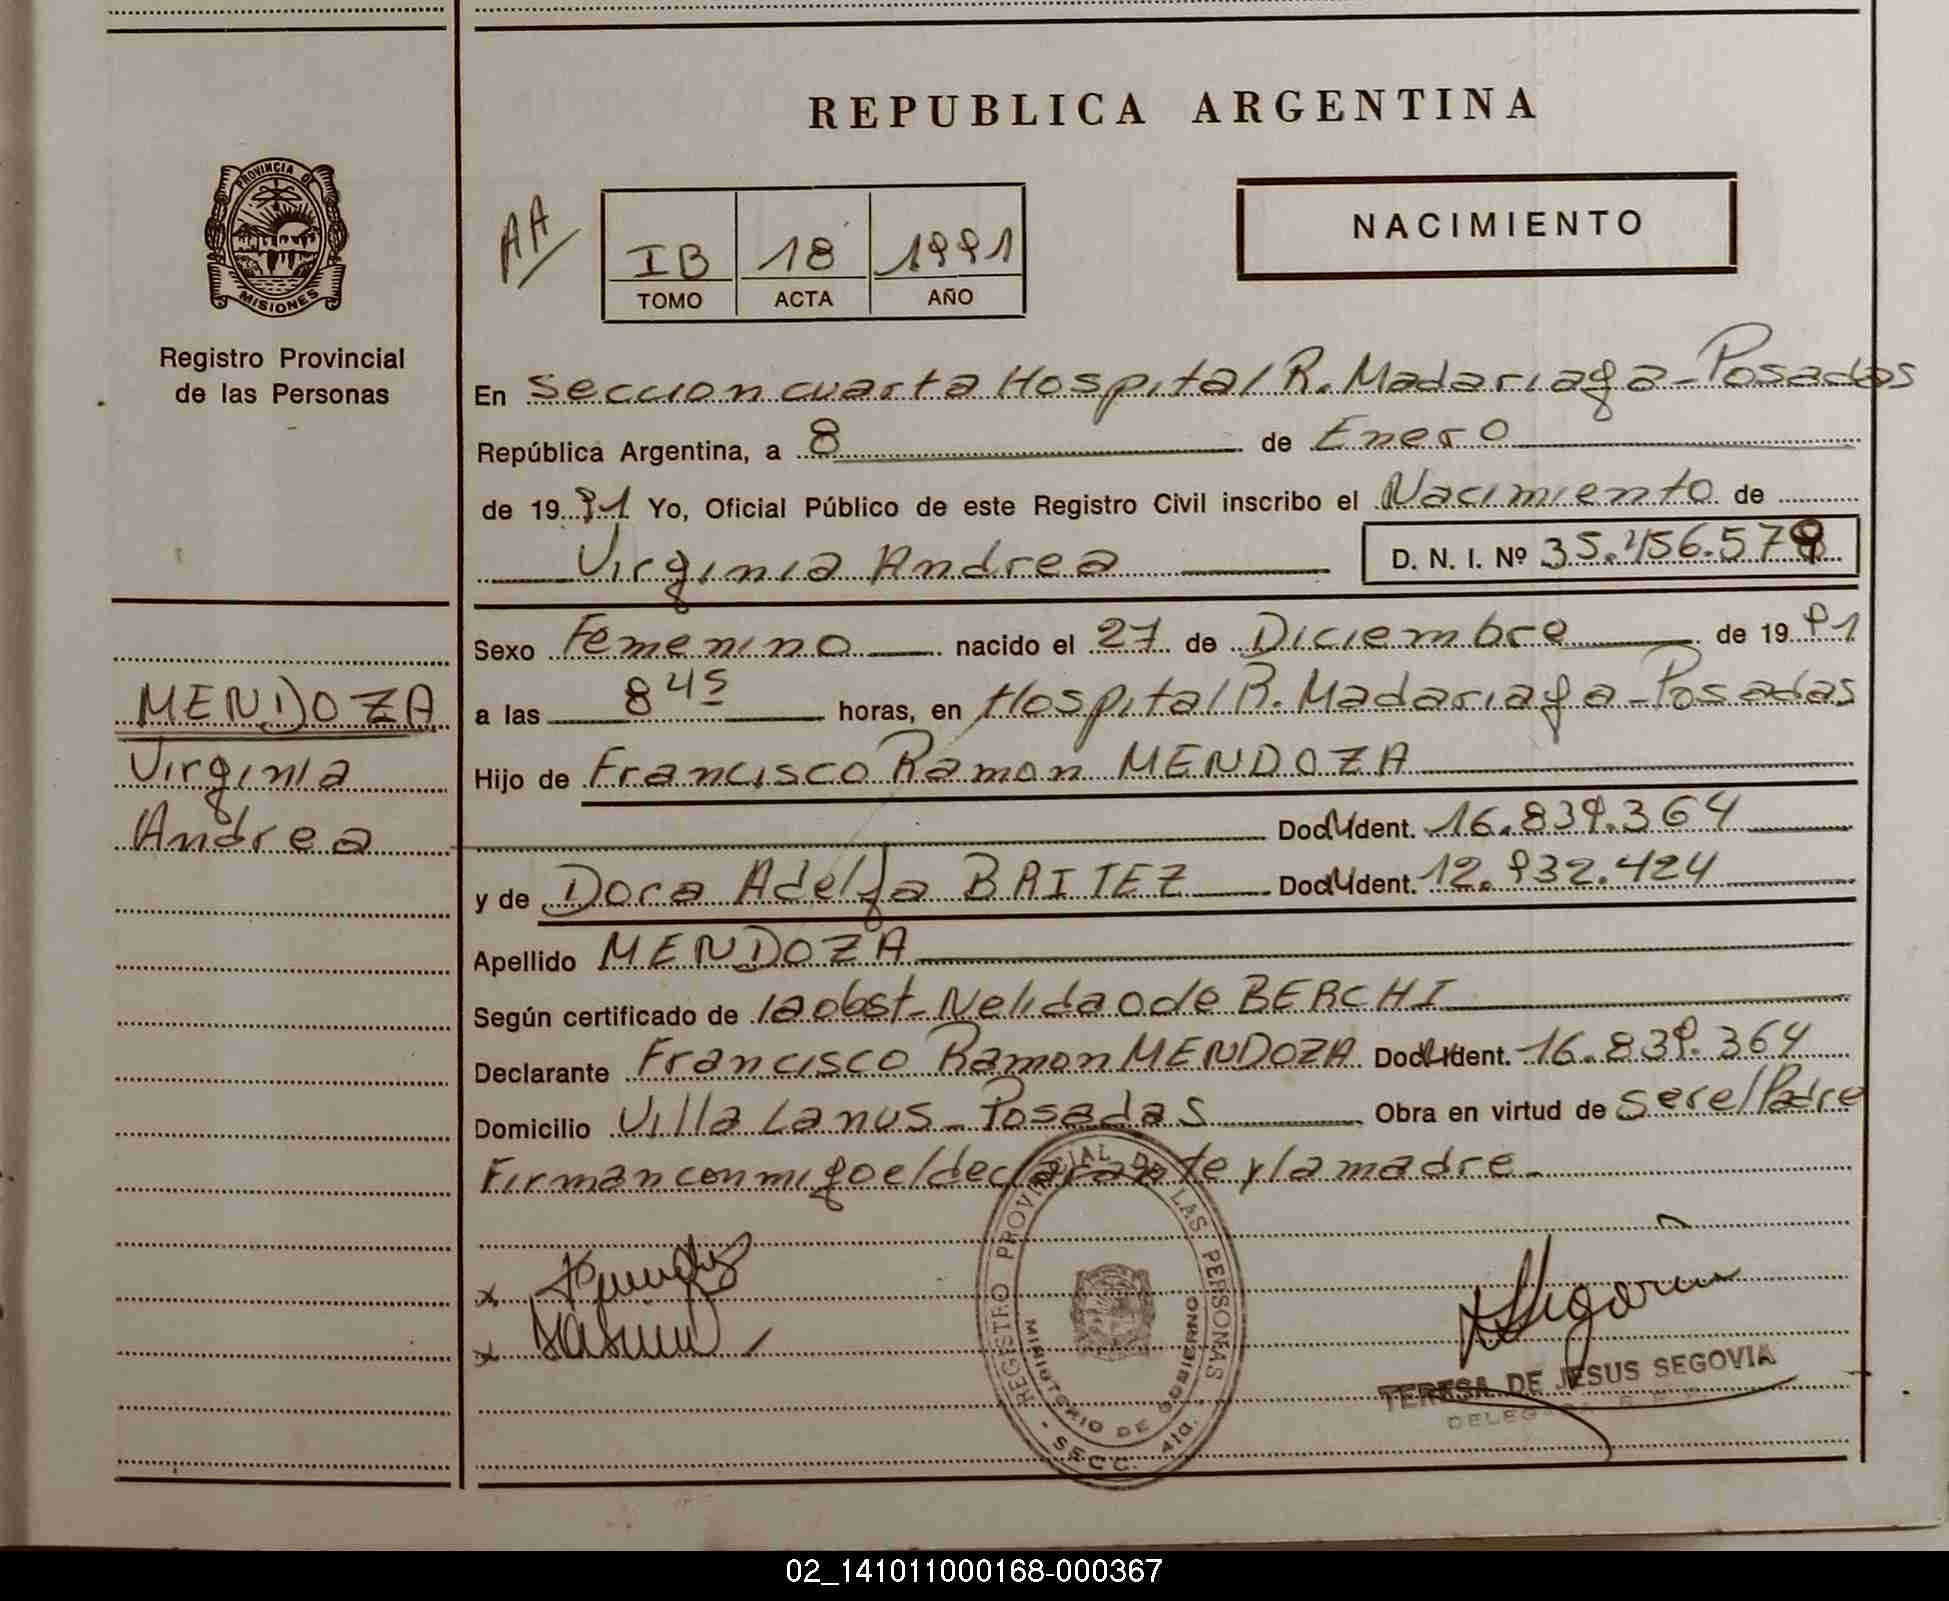 REPUBLICA ARGENTINA
PROVINCIA D
MISIONES
Registro Provincial
de las Personas
AA
IB 18 1991
TOMO ACTA AÑO
NACIMIENTO
En Seccion cuarta Hospital R. Madariaga - Posadas
República Argentina, a 8 de Enero
de 1991 Yo, Oficial Público de este Registro Civil inscribo el Nacimiento de
Virginia Andrea D. N. I. Nº 35.456.579
Sexo Femenino nacido el 27 de Diciembre de 1991
a las 8 45 horas, en Hospital R. Madariaga - Posadas
Hijo de Francisco Ramon MENDOZA
Doc. Ident. 16.839.364
y de Dora Adelfa BAITEZ Doc. Ident. 12.932.424
Apellido MENDOZA
Según certificado de la obst. Nelida O de BERCHI
Declarante Francisco Ramon MENDOZA Doc. Ident. 16.839.364
Domicilio Villa Lanus - Posadas Obra en virtud de ser el Padre
Firman conmigo el declarante y la madre -
MENDOZA
Virginia
Andrea
x
x
REGISTRO PROVINCIAL DE LAS PERSONAS
MINISTERIO DE GOBIERNO
- SECC. 4ta.
TERESA DE JESUS SEGOVIA
02_141011000168-000367